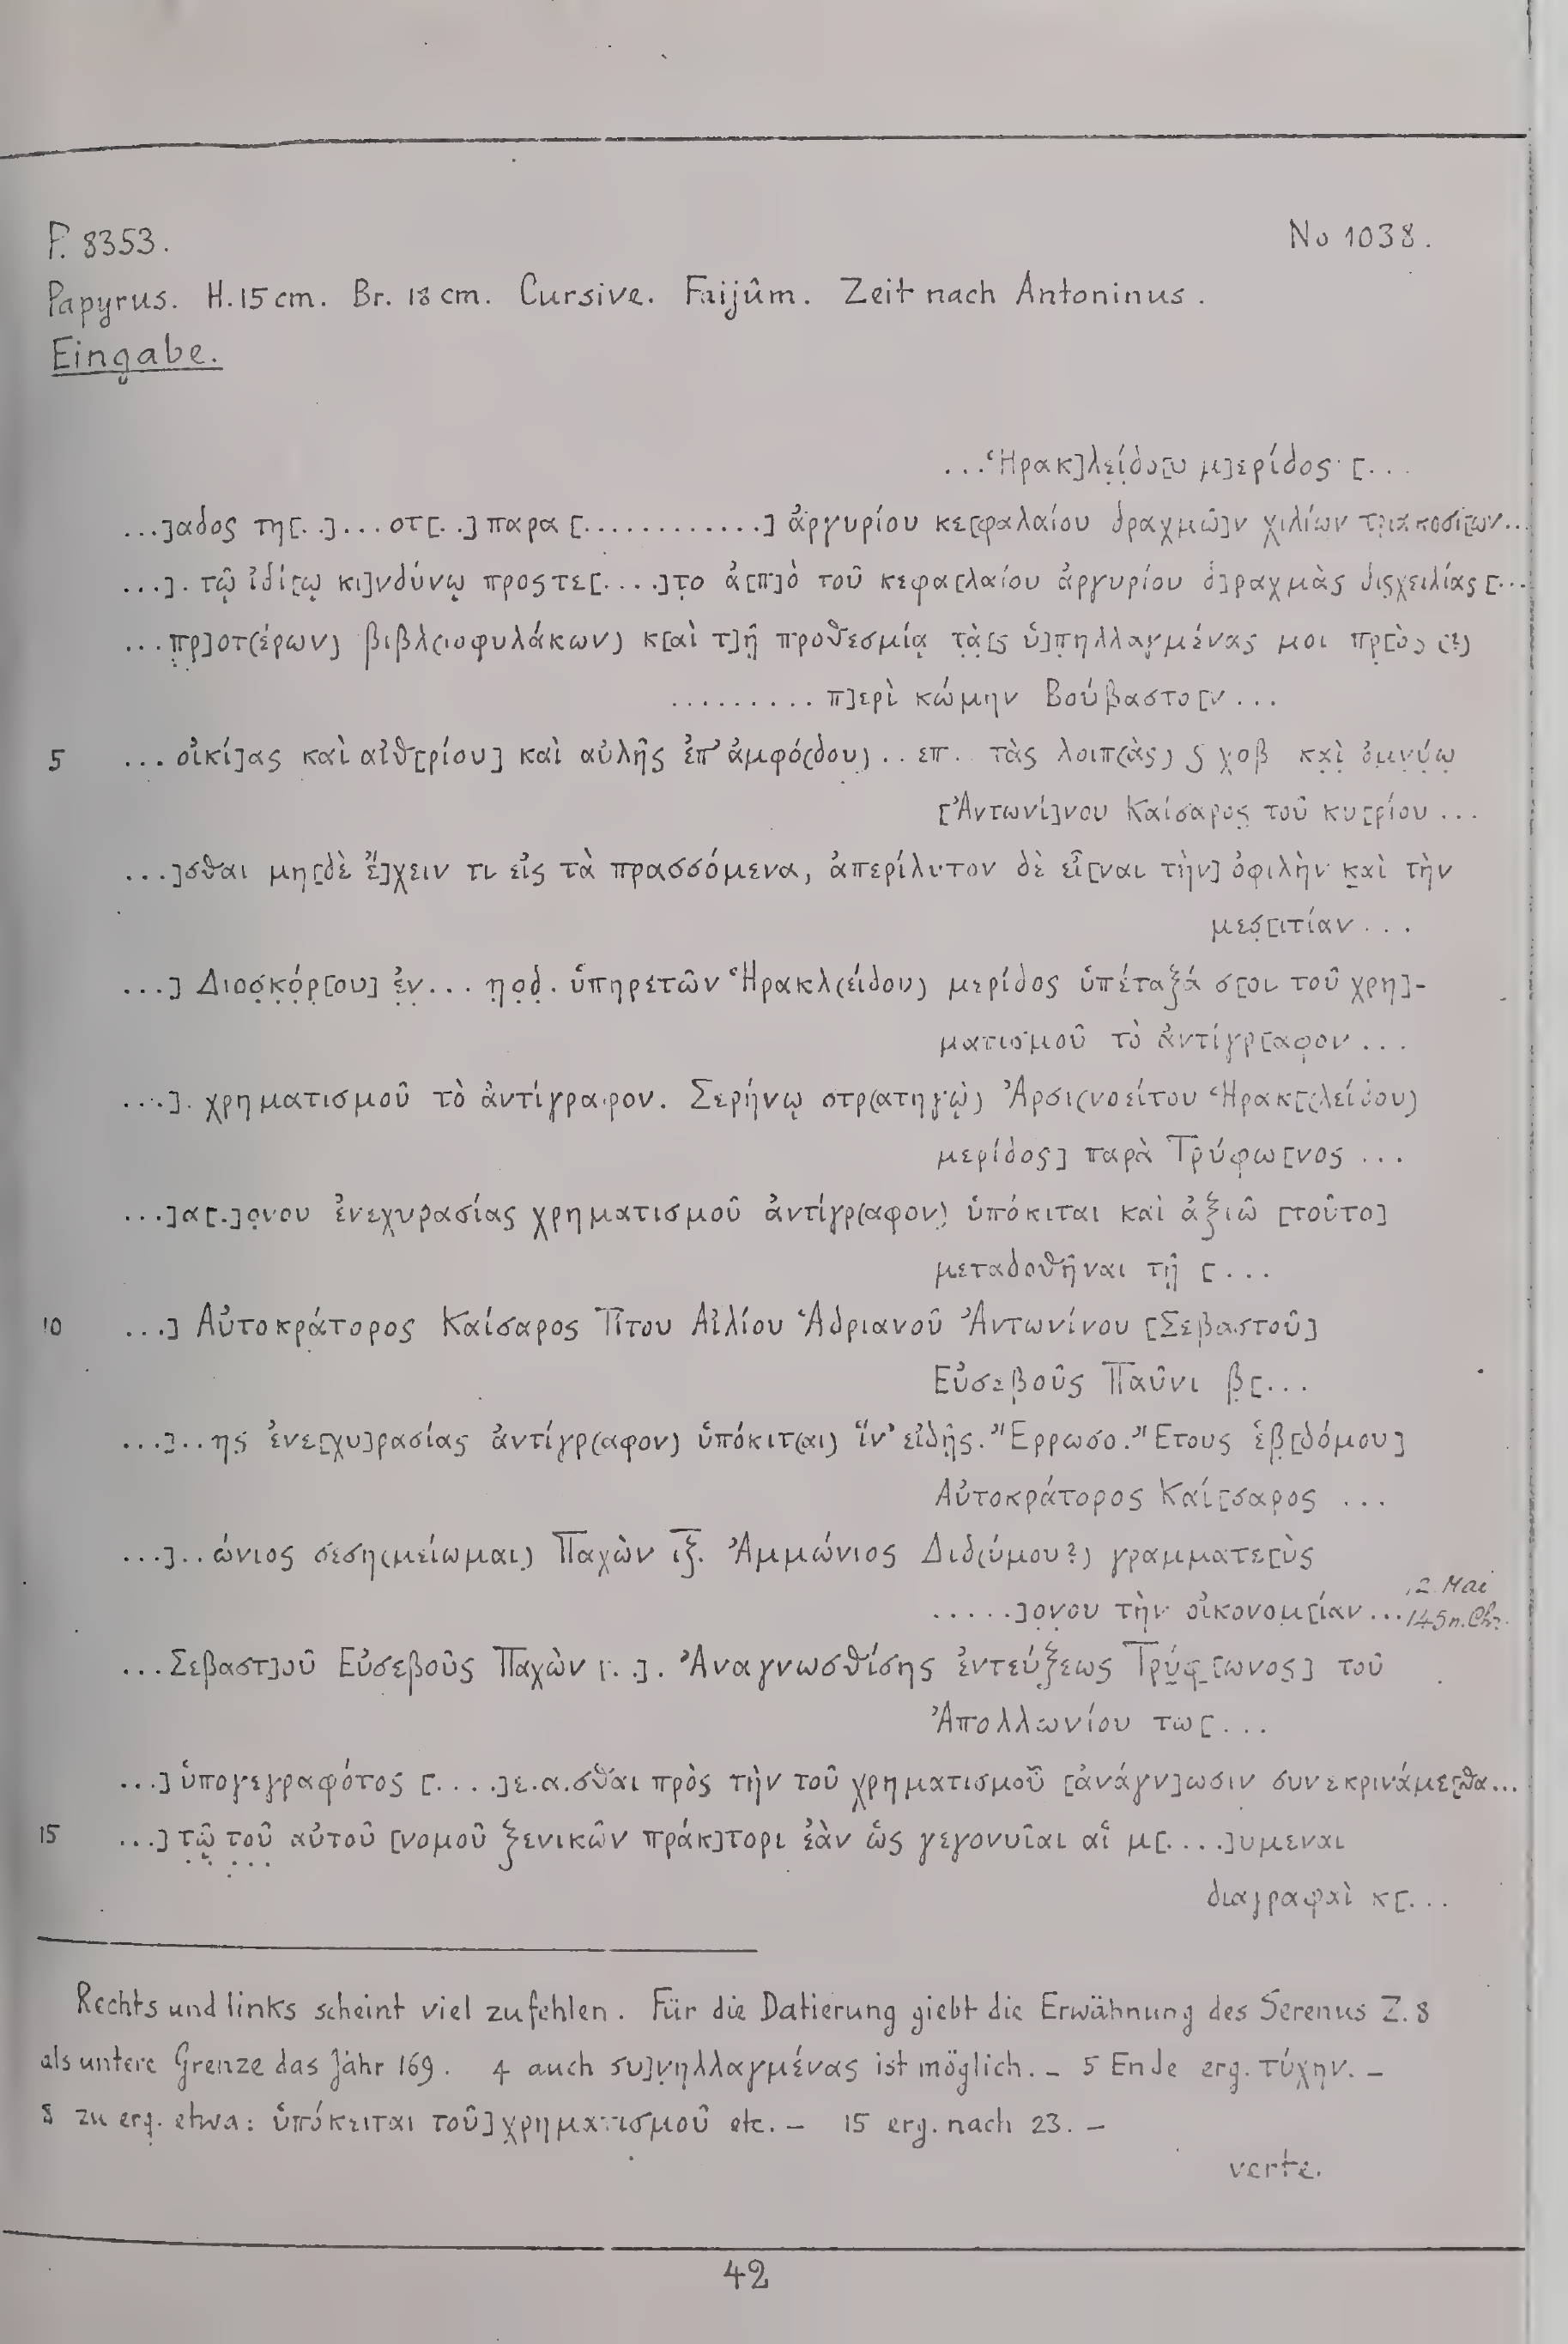 P. 8353.
No 1038.
Papyrus. H. 15 cm. Br. 18 cm. Cursive. Faijûm. Zeit nach Antoninus.
Eingabe.
...Ἡρακ]λείδο[υ μ]ερίδος [...
...]αδος τη[..]...οτ[..]παρα[............] ἀργυρίου κε[φαλαίου δραχμῶ]ν χιλίων τριακοσί[ων...
...]. τῷ ἰδί[ῳ κι]νδύνῳ προςτε[....]το ἀ[π]ὸ τοῦ κεφα[λαίου ἀργυρίου δ]ραχμὰς δισχειλίας [...
...πρ]οτ(έρων) βιβλ(ιοφυλάκων) κ[αὶ τ]ῇ προθεσμίᾳ τὰ[ς ὑ]πηλλαγμένας μοι πρ[ὸς (?)
.........π]ερὶ κώμην Βούβαστο[ν...
5 ...οἰκί]ας καὶ αἰθ[ρίου] καὶ αὐλῆς ἐπ' ἀμφό(δου)..επ.. τὰς λοιπ(ὰς) ϛ χοβ καὶ ὀμνύω
[Ἀντωνί]νου Καίσαρος τοῦ κυ[ρίου...
...]σθαι μη[δὲ ἔ]χειν τι εἰς τὰ πρασσόμενα, ἀπερίλυτον δὲ εἶ[ναι τὴν] ὀφιλὴν καὶ τὴν
μεσ[ιτίαν...
...] Διοσκόρ[ου] ἐν...ηοδ. ὑπηρετῶν Ἡρακλ(είδου) μερίδος ὑπέταξά σ[οι τοῦ χρη]-
ματισμοῦ τὸ ἀντίγρ[αφον...
...]. χρηματισμοῦ τὸ ἀντίγραφον. Σερήνῳ στρ(ατηγῷ) Ἀρσι(νοείτου Ἡρακ[(λείδου)
μερίδος] παρὰ Τρύφω[νος...
...]α[.]ονου ἐνεχυρασίας χρηματισμοῦ ἀντίγρ(αφον) ὑπόκιται καὶ ἀξιῶ [τοῦτο]
μεταδοθῆναι τῇ [...
10 ...] Αὐτοκράτορος Καίσαρος Τίτου Αἰλίου Ἁδριανοῦ Ἀντωνίνου [Σεβαστοῦ]
Εὐσεβοῦς Παῦνι β[...
...]..ης ἐνε[χυ]ρασίας ἀντίγρ(αφον) ὑπόκιτ(αι) ἵν' εἰδῇς. Ἔρρωσο. Ἔτους ἑβ[δόμου]
Αὐτοκράτορος Καί[σαρος ...
...]..ώνιος σεση(μείωμαι) Παχὼν ιζ. Ἀμμώνιος Διδ(ύμου?) γραμματε[ὺς
.....]ονου τὴν οἰκονομ[ίαν...
12. Mai
145 n. Chr.
...Σεβαστ]οῦ Εὐσεβοῦς Παχὼν [..]. Ἀναγνωσθίσης ἐντεύξεως Τρύφ[ωνος] τοῦ
Ἀπολλωνίου τω[...
...] ὑπογεγραφότος [....]ε.α.σθαι πρὸς τὴν τοῦ χρηματισμοῦ [ἀνάγν]ωσιν συνεκρινάμε[θα...
15 ...] τῷ τοῦ αὐτοῦ [νομοῦ ξενικῶν πράκ]τορι ἐὰν ὡς γεγονυῖαι αἱ μ[....]υμεναι
διαγραφαὶ κ[...
Rechts und links scheint viel zu fehlen. Für die Datierung giebt die Erwähnung des Serenus Z. 8
als untere Grenze das Jahr 169. 4 auch συ]νηλλαγμένας ist möglich. – 5 Ende erg. τύχην. –
8 zu erg. etwa: ὑπόκειται τοῦ] χρηματισμοῦ etc. – 15 erg. nach 23. –
verte.
42